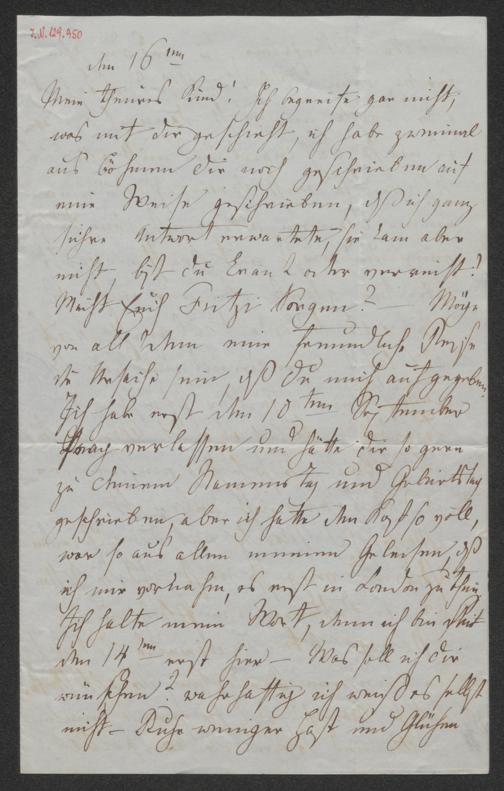 I.N. 129.950
den 16ten
Mein theures Kind! Ich begreife gar nicht,
was mit dir geschieht, ich habe zweimal
aus Böhmen dir noch geschrieben auf
eine Weise geschrieben, daß ich ganz
sichre Antwort erwartete, sie kam aber
nicht, bist du krank oder verreist?
Macht Euch Fritzi Sorgen? — Möge
von all dem eine freundliche Reise
die Ursache sein, daß du mich aufgegeben.
Ich habe erst den 10ten September
Prag verlassen und hätte dir so gern
zu deinem Namenstag und Geburtstag
geschrieben, aber ich hatte den Kopf so voll,
war so aus allen meinen Geleisen, daß
ich mir vornahm, es erst in London zu thun
Ich halte mein Wort, denn ich bin seit
den 14ten erst hier — Was soll ich dir
wünschen? wahrhaftig ich weiß es selbst
nicht — Ruhe weniger Hast und Glühen